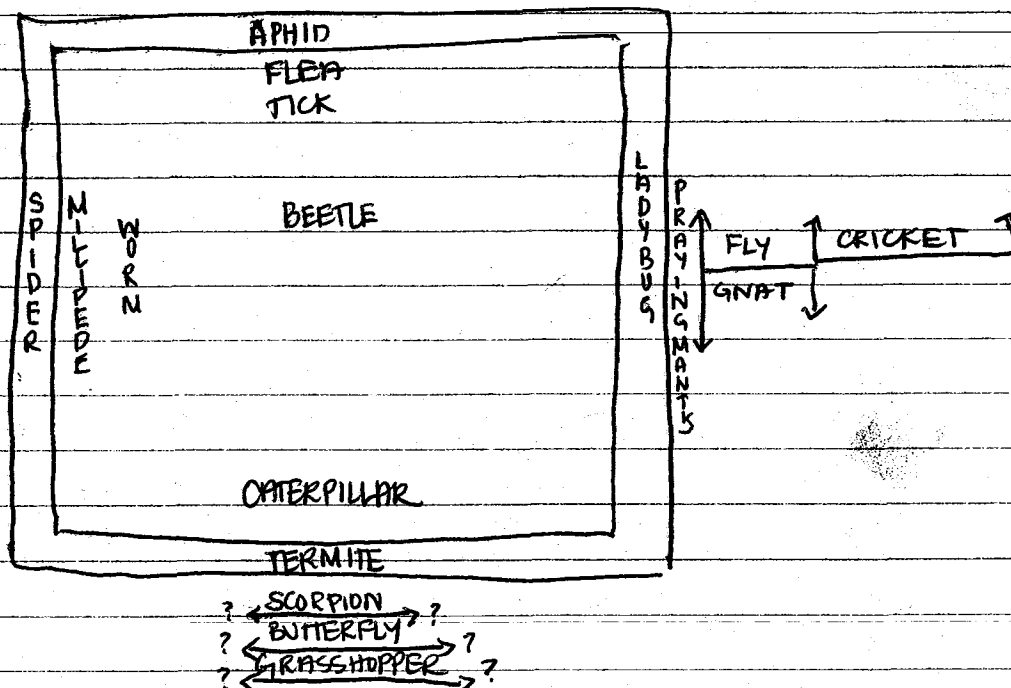 APHID
FLEA
TICK
SPIDER
MILLIPEDE
WORM
BEETLE
LADYBUG
PRAYINGMANTIS
FLY
CRICKET
GNAT
CATERPILLAR
TERMITE
? SCORPION ?
? BUTTERFLY ?
? GRASSHOPPER ?